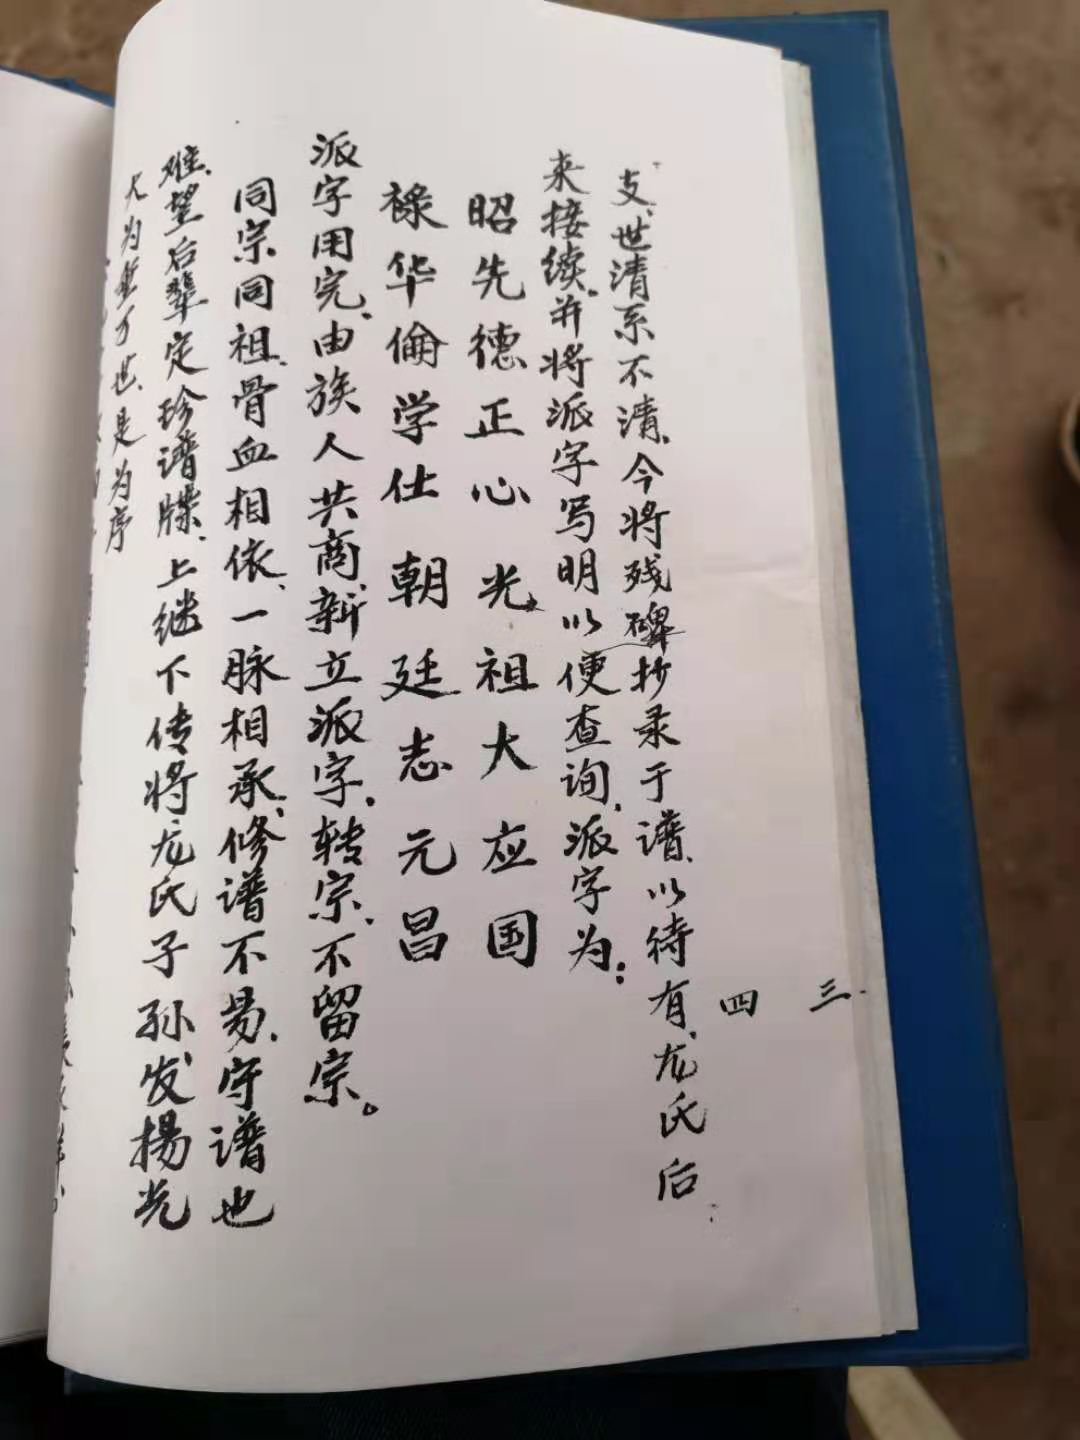 三
四
支、世清系不清、今将残碑抄录于谱、以待有、龙氏后
来接续。并将派字写明以便查询、派字为：
昭先德正心光祖大应国
禄华倫学仕朝廷志元昌
派字用完、由族人共商、新立派字、转宗、不留宗。
同宗同祖、骨血相依、一脉相承、修谱不易、守谱也
难、望后辈定珍谱牒、上继下传将龙氏子孙、发揚光
大为 万世、是为序